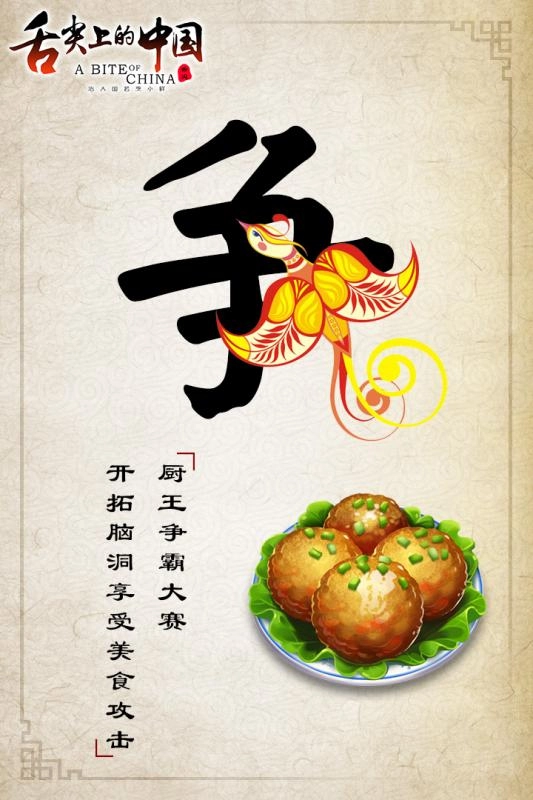 舌尖上的中国
A BITE OF
CHINA
治大国若烹小鲜
争
厨王争霸大赛
开拓脑洞享受美食攻击